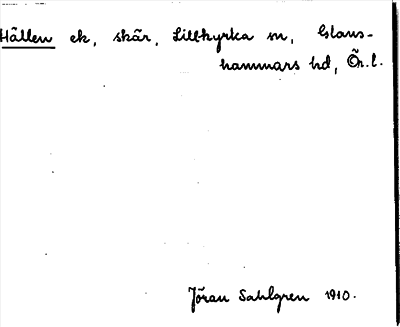 Hällen ek, skär, Lillkyrka sn, Glans-
hammars hd, Ör. l.
Jöran Sahlgren 1910.